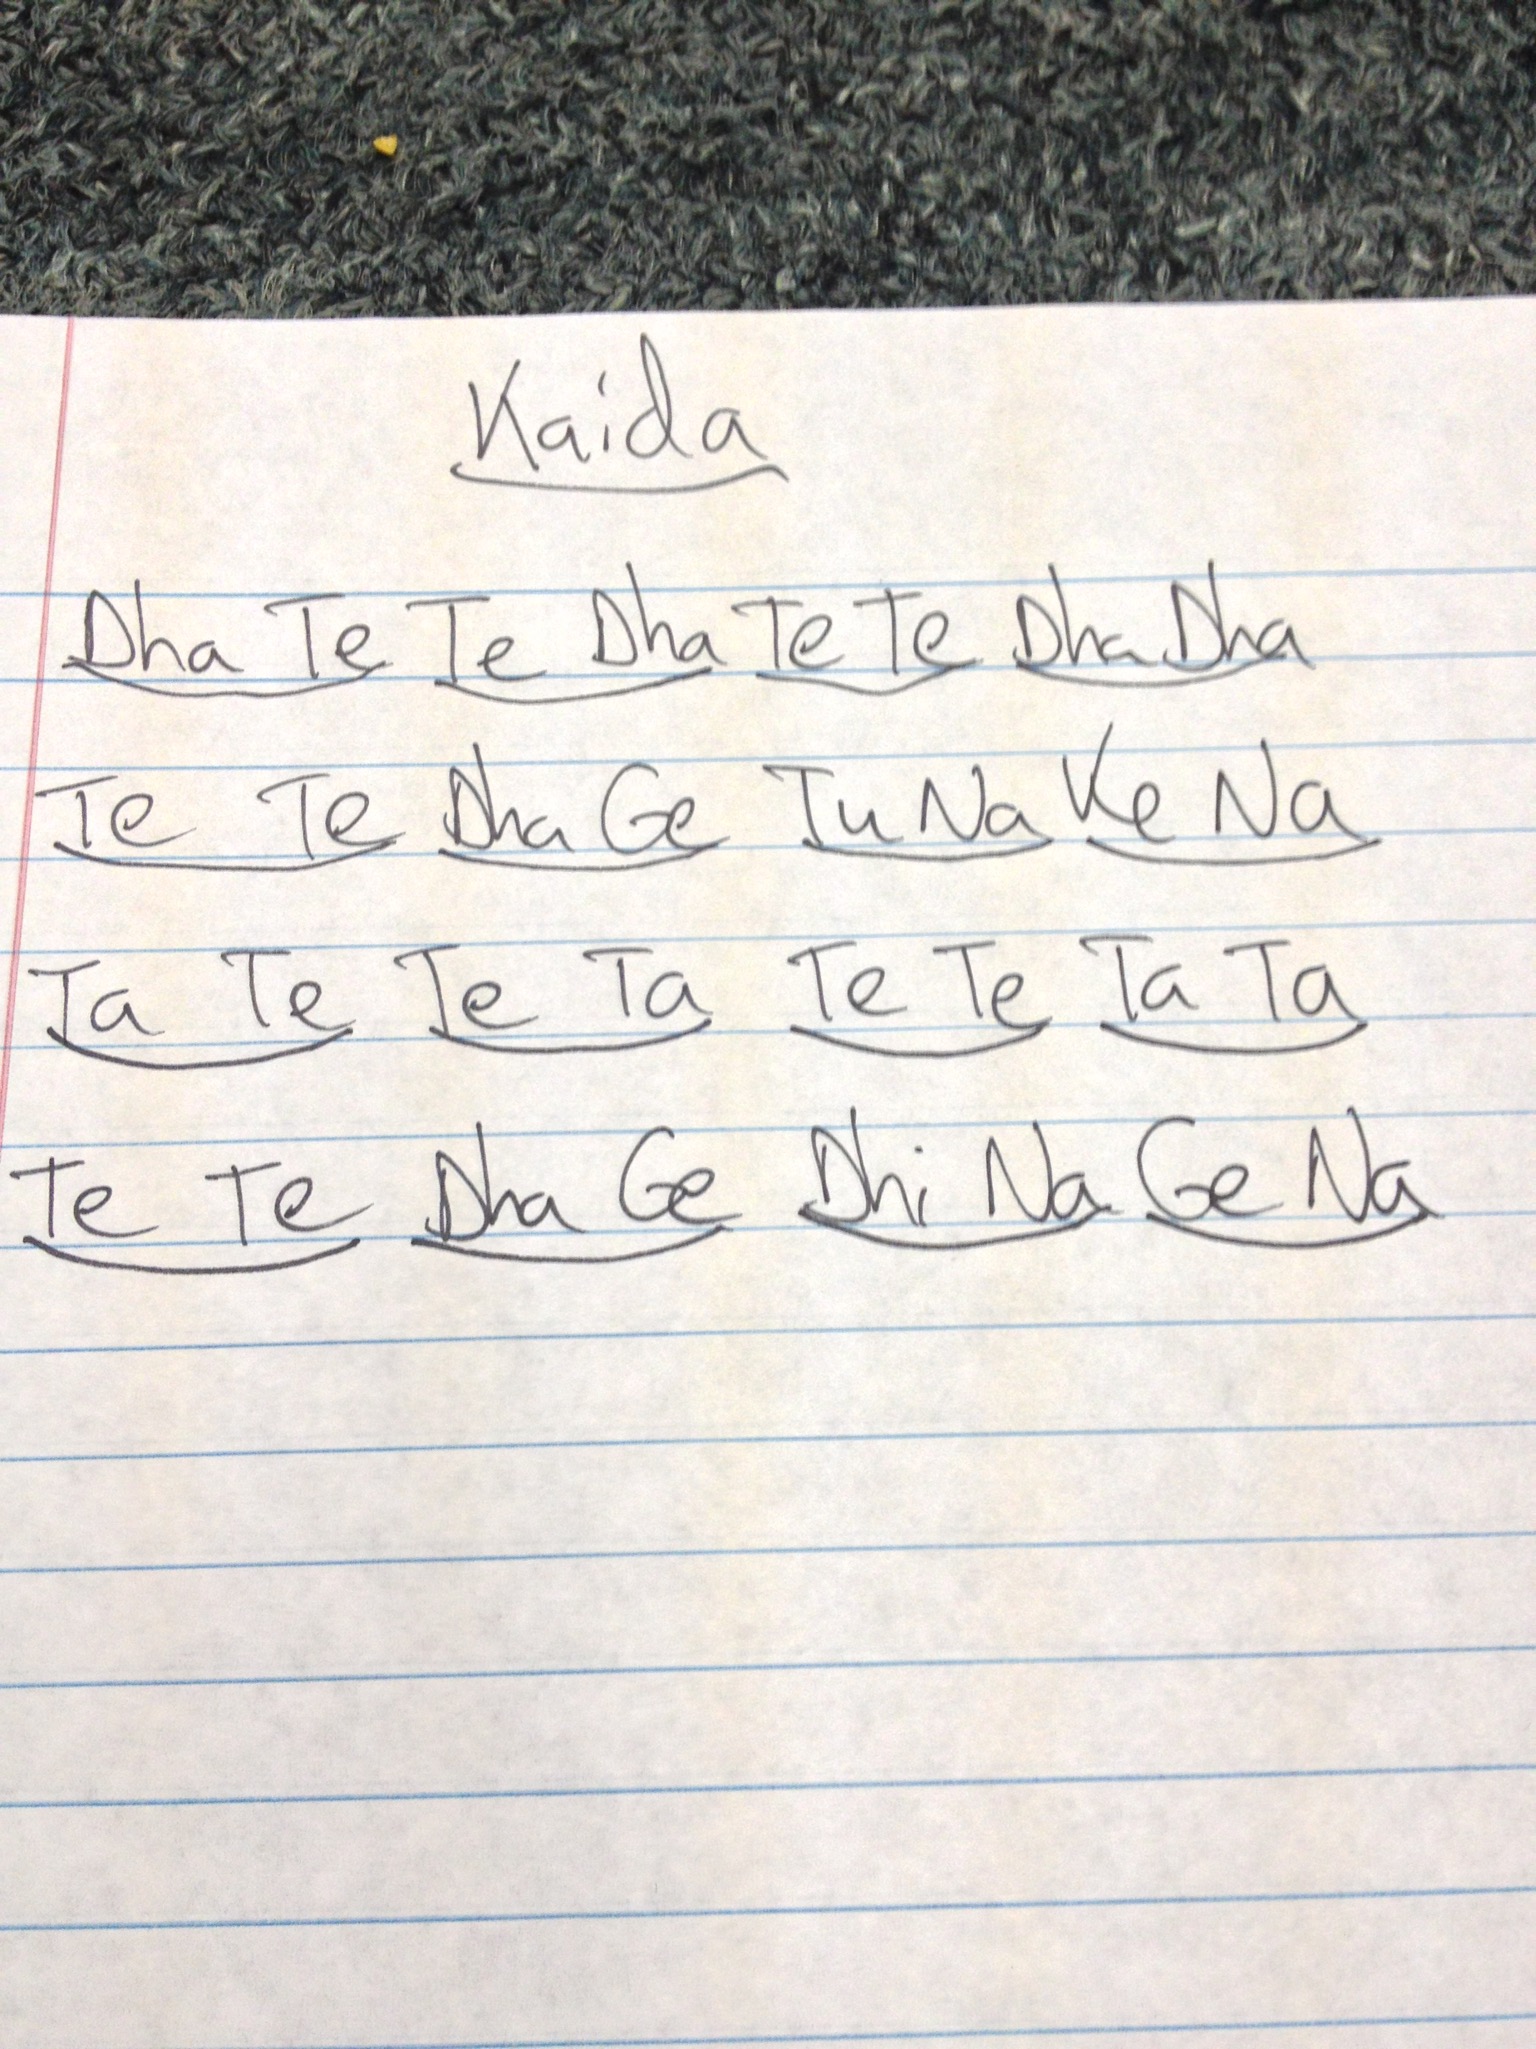 Kaida
Dha Te Te Dha Te Te Dha Dha
Te Te Dha Ge Tu Na Ke Na
Ta Te Te Ta Te Te Ta Ta
Te Te Dha Ge Dhi Na Ge Na